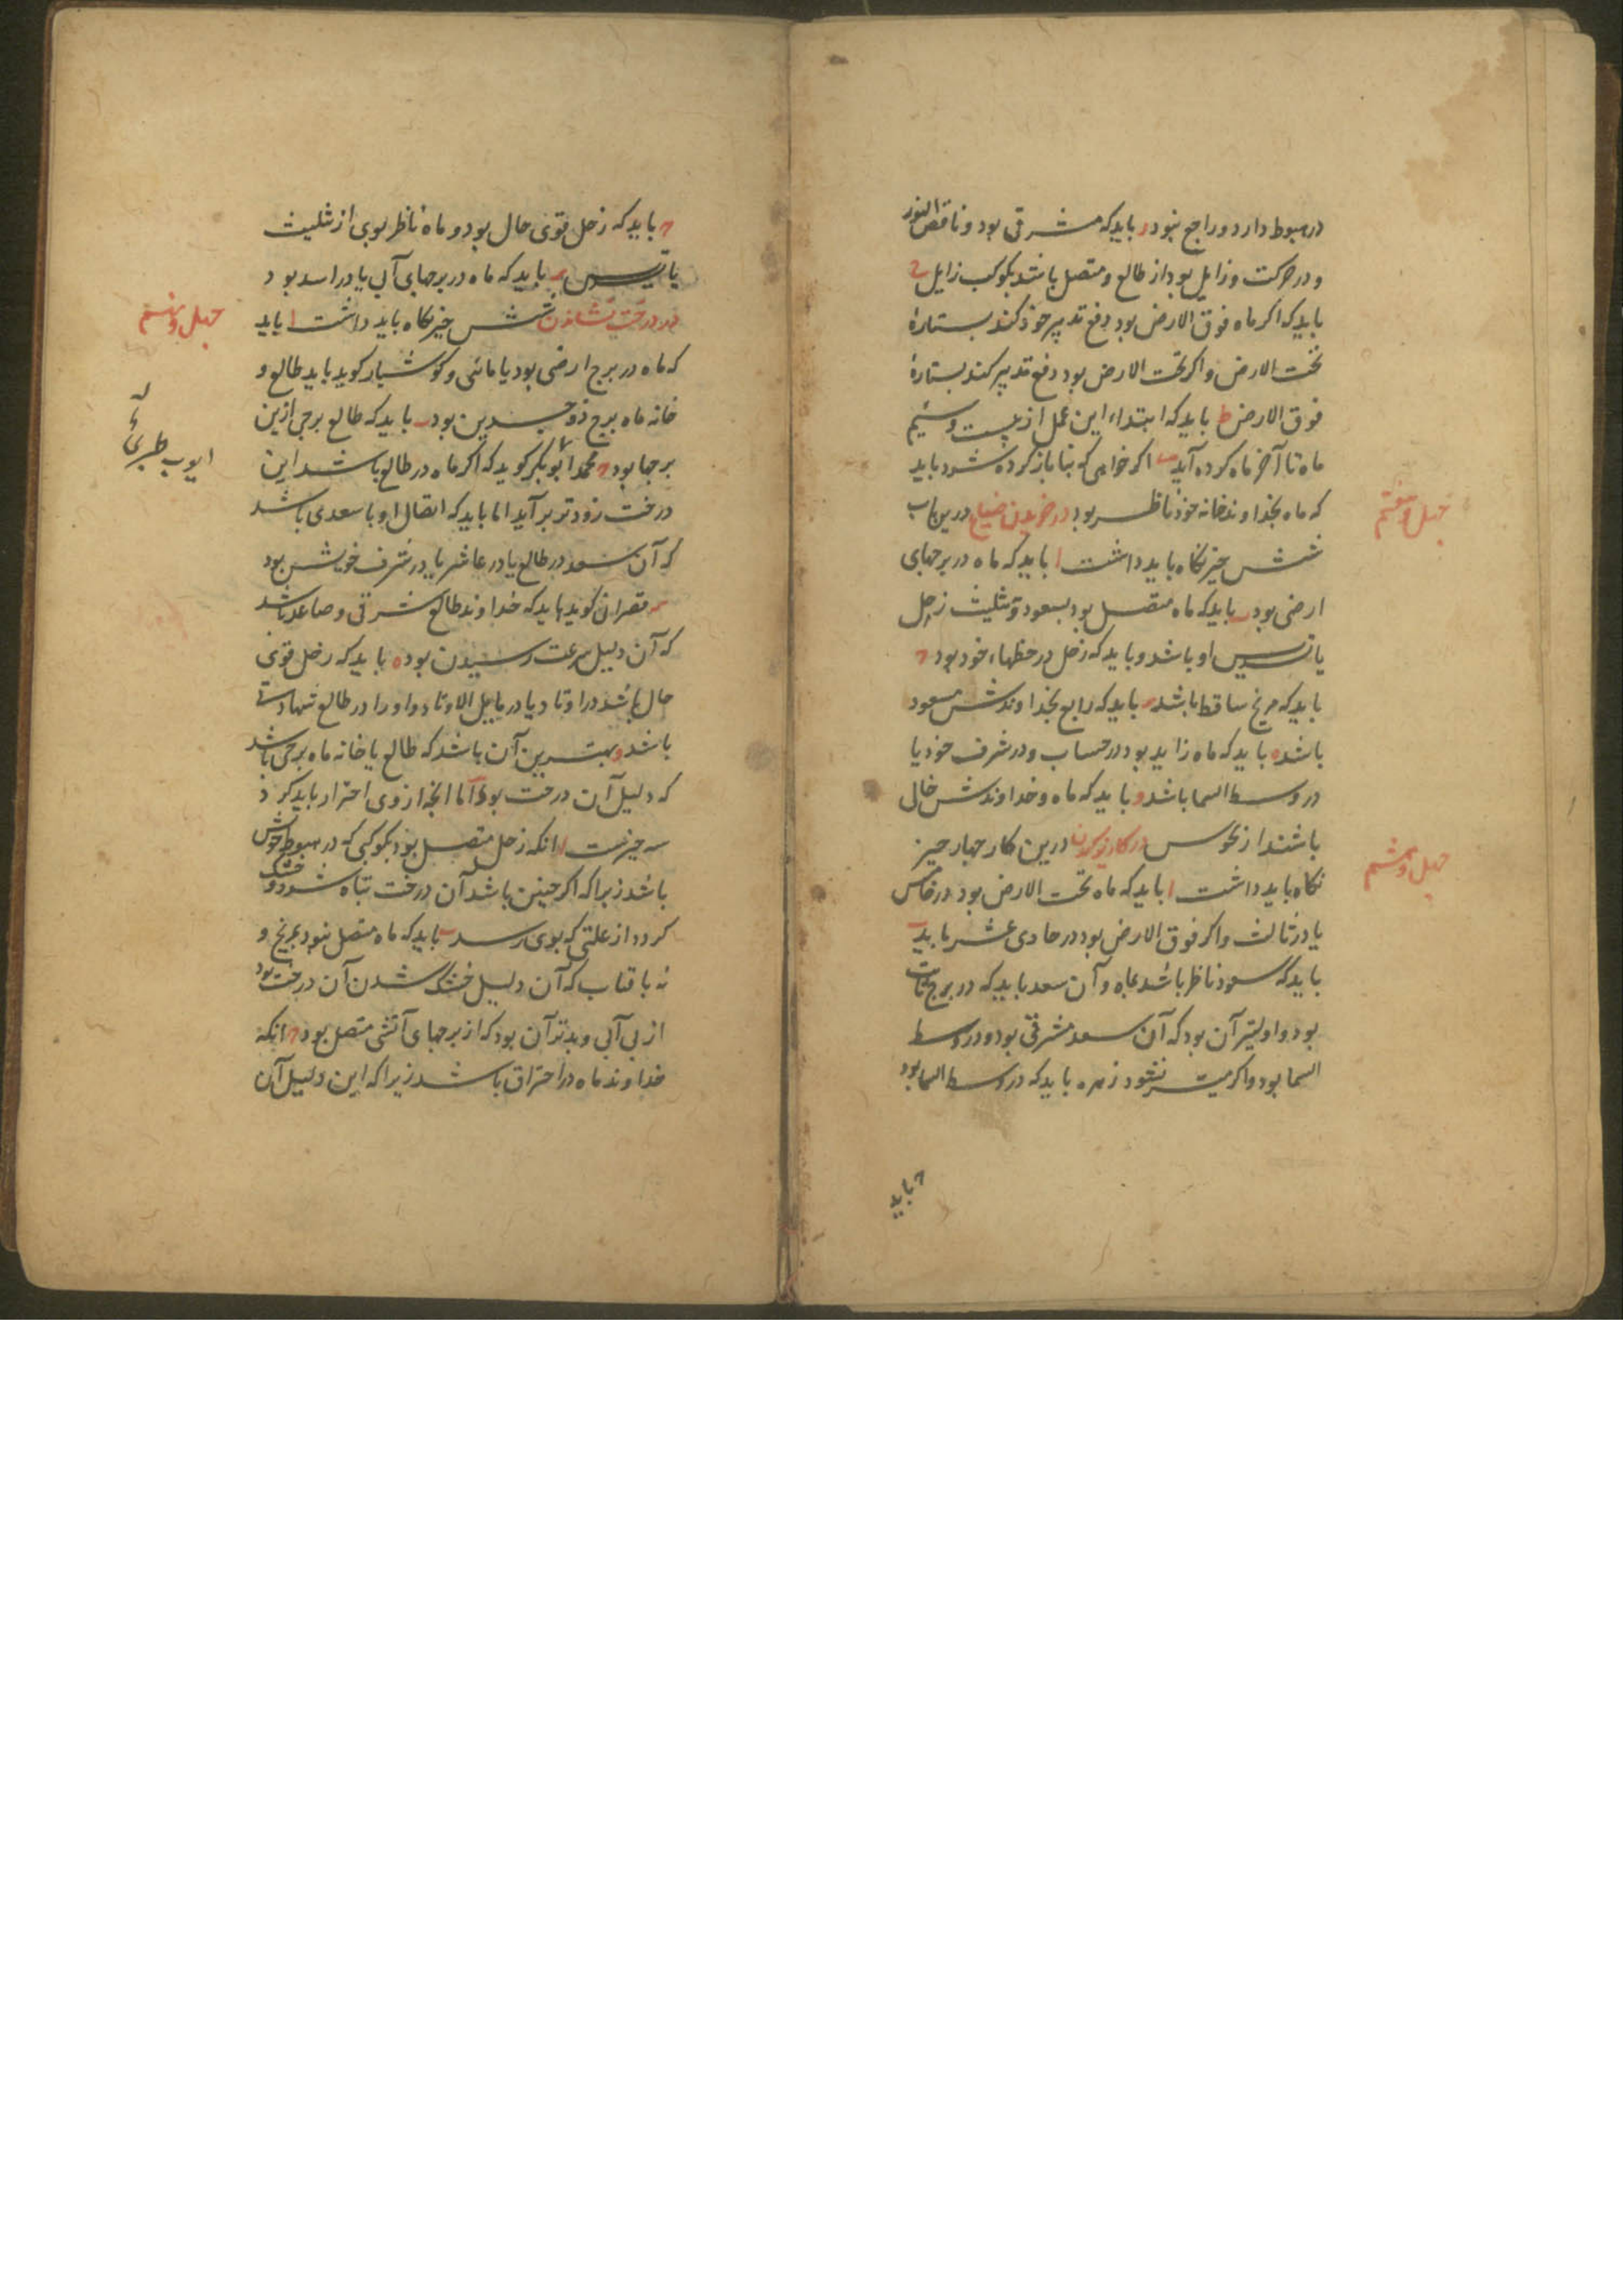 در هبوط دارد و راجع نبود ر بایدکه مشرقی بود و ناقص النور
و در حرکت و زایل بود از طالع و متصل باشد بکوکب زایل ح
بایدکه اکر ماه فوق الارض بود دفع تدبیر خود کند بستارهٔ
تحت الارض و اکر تحت الارض بود دفع تدبیر کند بستارهٔ
فوق الارض ط بایدکه ابتداء این عمل از بیست و سیّم
ماه تا آخر ماه کرده آید اکر خواهی که بنا باز کرده شود باید
که ماه بخداوند خانه خود ناظر بود در خریدن ضیاع درین باب
چهل و هفتم
شش چیز نکاه باید داشت ا بایدکه ماه در برجهای
ارضی بود ب بایدکه ماه متصل بود بسعود و تثلیث زحل
یا تسدیس او باشد و بایدکه زحل در حظهاء خود بود ح
بایدکه مریخ ساقط باشد د بایدکه رابع بخداوندش مسعود
باشد ه بایدکه ماه زاید بود در حساب و در شرف خود یا
در وسط السما باشد و بایدکه ماه و خداوندش خالی
باشند از نحوس در کاریز کردن درین کار چهار چیز
چهل و هشتم
نکاه باید داشت ا بایدکه ماه تحت الارض بود در خامس
یا در ثالث و اکر فوق الارض بود در حادی عشر باید ب
بایدکه سعود ناظر باشد بماه و آن سعد بایدکه در برج ثابت
بود و اولیتر آن بود که آن سعد مشرقی بود و در وسط
السما بود و اکر میسر نشود زهره بایدکه در وسط السما بود
ح باید
ح بایدکه زحل قوی حال بود و ماه ناظر بوی از تثلیث
یا تسدیس د بایدکه ماه در برجهای آبی یا در اسد بود
در درخت نشاندن شش چیز نکاه باید داشت ا باید
چهل و نهم
که ماه در برج ارضی بود یا مائی و کوشیار کوید باید طالع و
خانه ماه برج ذوجسدین بود ب بایدکه طالع برجی ازین
برجها بود ح محمد ابوبکر کوید که اکر ماه در طالع باشد این
ایوب طبری
درخت زودتر برآید اما بایدکه اتصال او با سعدی باشد
که آن سعد در طالع یا در عاشر یا در شرف خویش بود
د قصرانی کوید بایدکه خداوند طالع شرقی و صاعد باشد
که آن دلیل سرعت رسیدن بود ه بایدکه زحل قوی
حال باشد در اوتاد یا در مایل الاوتاد و او را در طالع شهادتی
باشد و بهترین آن باشد که طالع یا خانه ماه برجی باشد
که دلیل آن درخت بود اما آنچه از وی احتراز باید کرد
سه چیزست ا انکه زحل متصل بود بکوکبی که در هبوط خویش
باشد زیراکه اکر چنین باشد آن درخت تباه شود و خشک
کردد از علتی که بوی رسد ب بایدکه ماه متصل نبود بمریخ و
نه بافتاب که آن دلیل خشک شدن آن درخت بود
از بی آبی و بدتر آن بود که از برجهای آتشی متصل بود ح انکه
خداوند ماه در احتراق باشد زیراکه این دلیل آن